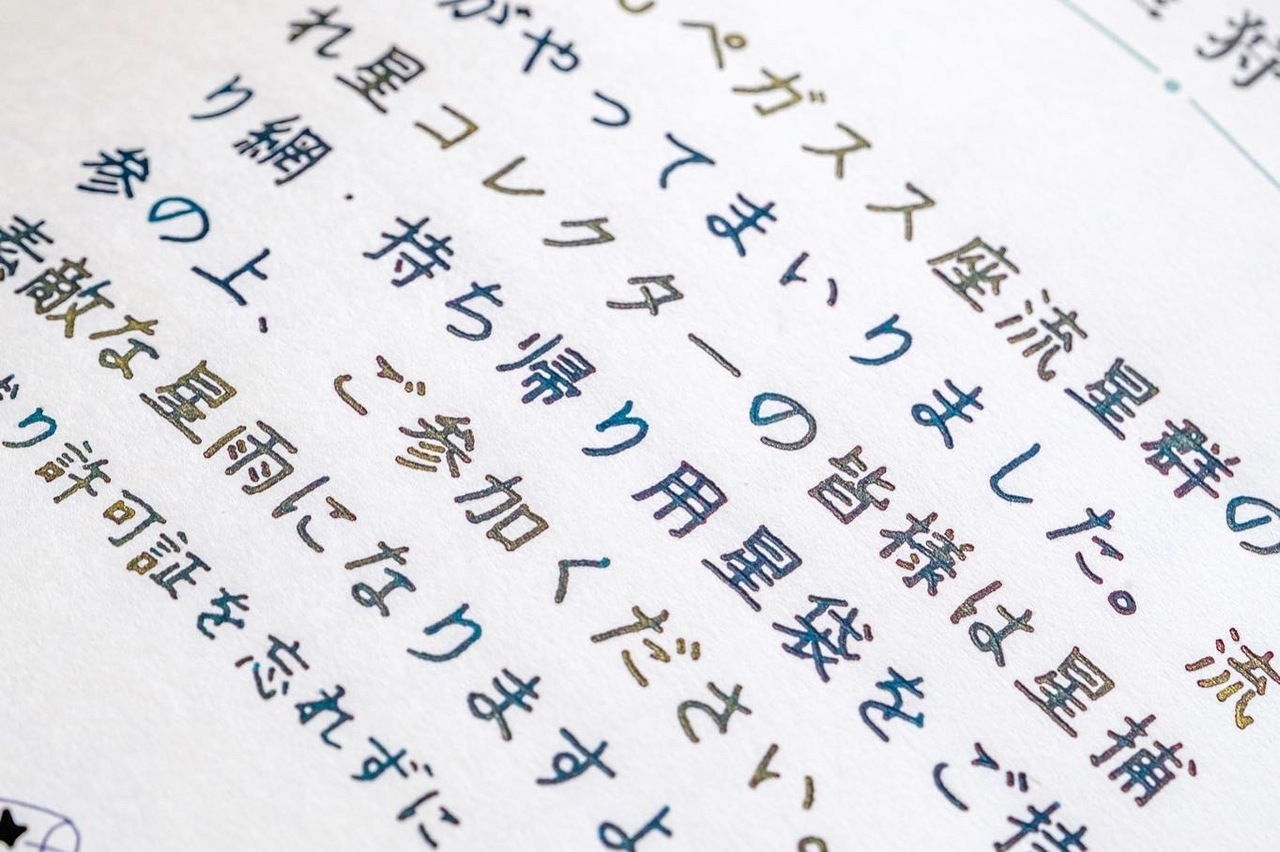 狩
ペガスス座流星群の
がやってまいりました。流
れ星コレクターの皆様は星捕
り網・持ち帰り用星袋をご持
参の上、ご参加ください。
素敵な星雨になりますよ
り許可証を忘れずに